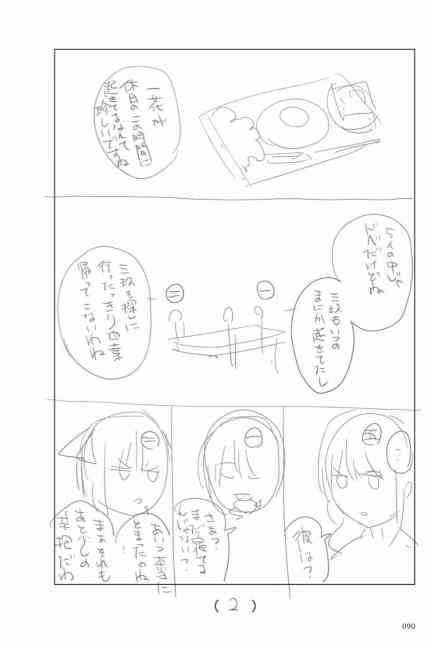 一花が
休日のこの時間に
起きてるなんて
珍しいですね
5人の中じゃ
ドベだけどね
三玖もいつの
まにか起きてたし
三玖を探しに
行ったっきり四葉
帰ってこないわね
二
一
五
…
彼は?
一
さぁ?
まだ寝てる
んじゃない?
二
あいつ本当に
とまったのね
まぁそれも
あと少しの
辛抱だわ
(2)
090